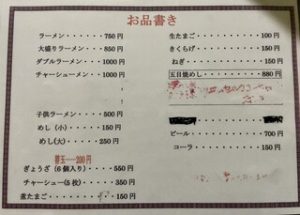 お品書き
ラーメン ------ 750円
大盛りラーメン ------ 850円
ダブルラーメン ------ 1000円
チャーシューメン ------ 1000円
子供ラーメン ------ 500円
めし（小） ------ 150円
めし(大) ------ 250円
替玉---200円
ぎょうざ（6個入り） ---- 550円
チャーシュー(5枚) ------ 350円
煮たまご ------ 150円
生たまご ------ 100円
きくらげ ------ 150円
ねぎ ------ 150円
五目焼めし ------ 880円
ビール ------ 700円
コーラ ------ 150円